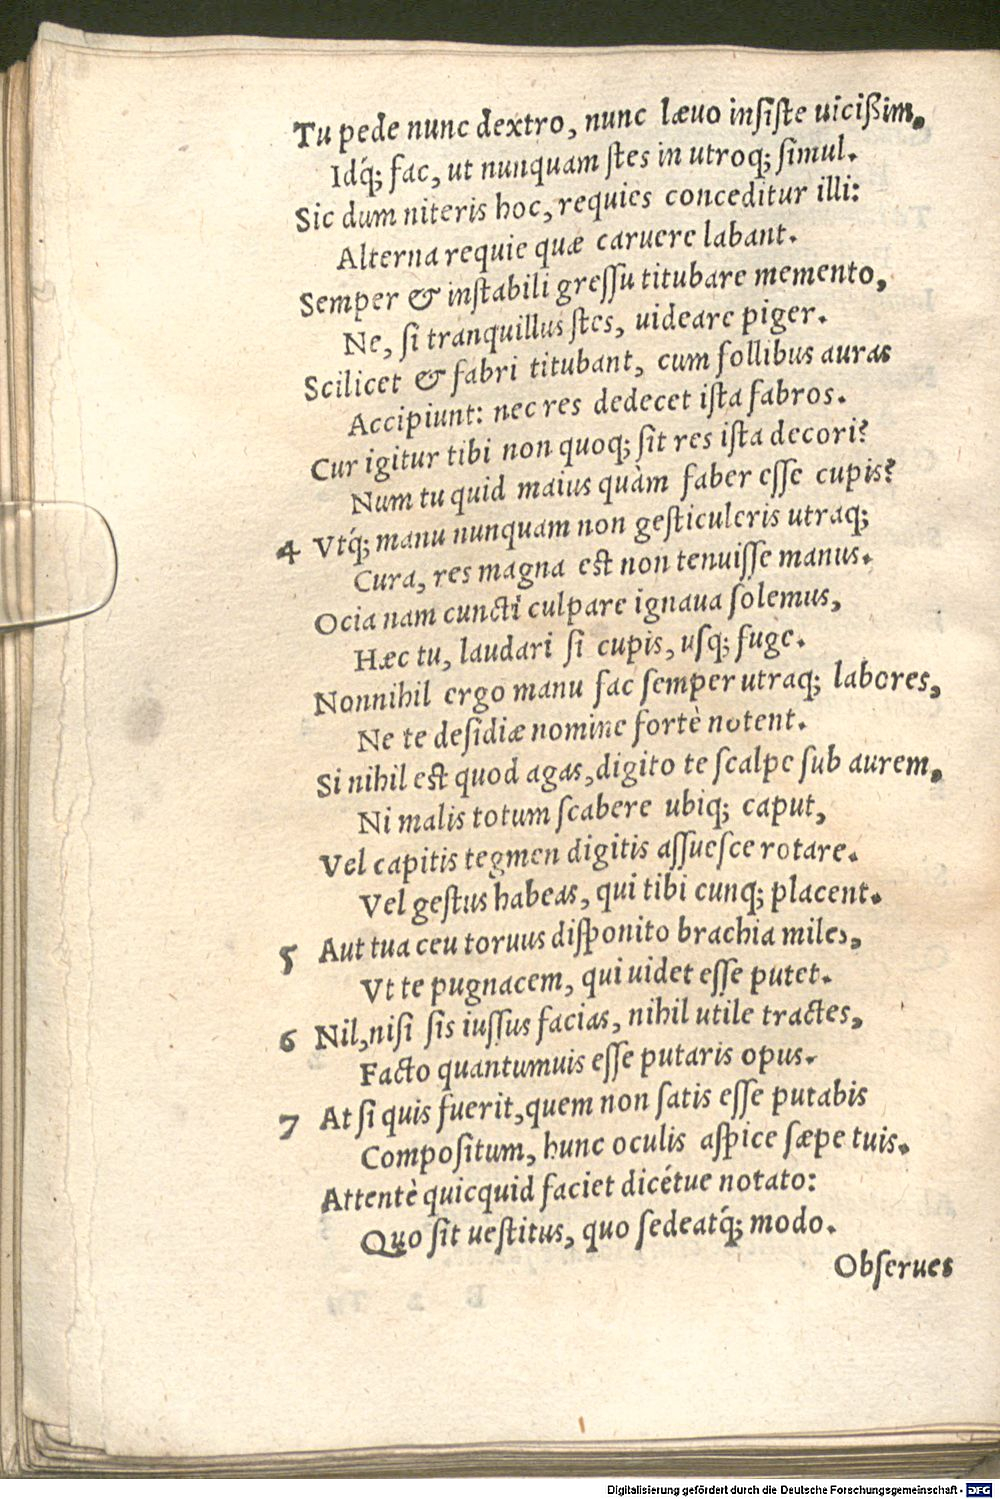 Tu pede nunc dextro, nunc lævo insiste uicißim,
Idq́; fac, ut nunquam stes in utroq; simul.
Sic dum niteris hoc, requies conceditur illi:
Alterna requie quæ caruere labant.
Semper & instabili gressu titubare memento,
Ne, si tranquillus stes, uideare piger.
Scilicet & fabri titubant, cum follibus auras
Accipiunt: nec res dedecet ista fabros.
Cur igitur tibi non quoq; sit res ista decori?
Num tu quid maius quàm faber esse cupis?
4 Vtq́; manu nunquam non gesticuleris utraq;
Cura, res magna est non tenuisse manus.
Ocia nam cuncti culpare ignaua solemus,
Hæc tu, laudari si cupis, usq; fuge.
Nonnihil ergo manu fac semper utraq; labores,
Ne te desidiæ nomine fortè notent.
Si nihil est quod agas, digito te scalpe sub aurem,
Ni malis totum scabere ubiq; caput,
Vel capitis tegmen digitis assuesce rotare.
Vel gestus habeas, qui tibi cunq; placent.
5 Aut tua ceu toruus disponito brachia miles,
Vt te pugnacem, qui uidet esse putet.
6 Nil, nisi sis iussus facias, nihil utile tractes,
Facto quantumuis esse putaris opus.
7 At si quis fuerit, quem non satis esse putabis
Compositum, hunc oculis aspice sæpe tuis.
Attentè quicquid faciet dicétue notato:
Quo sit uestitus, quo sedeatq́; modo.
Obserues
Digitalisierung gefördert durch die Deutsche Forschungsgemeinschaft - DFG